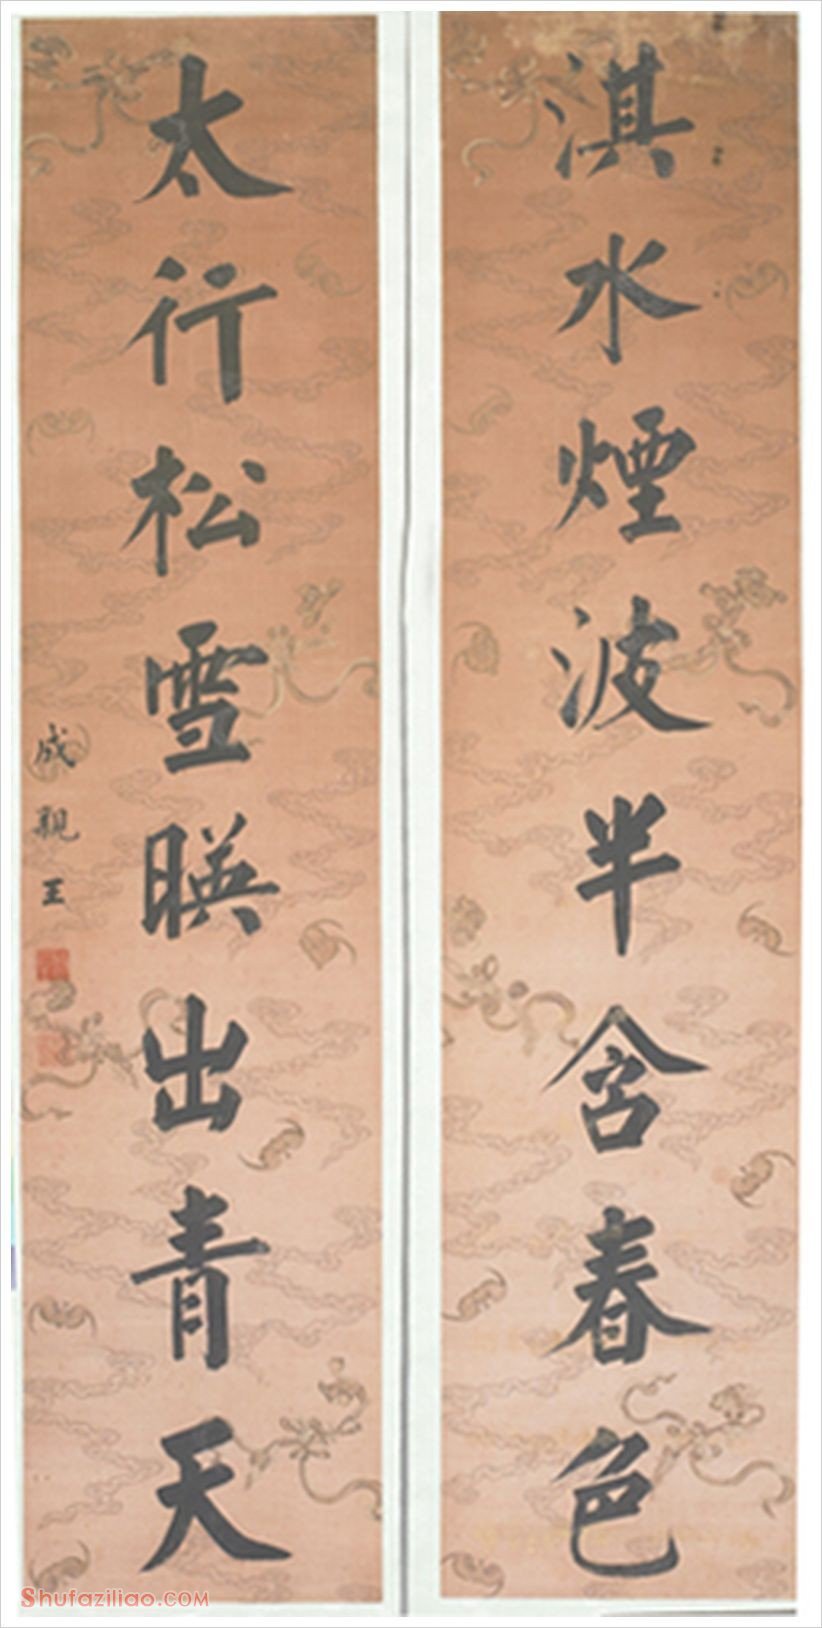 淇水煙波半含春色
太行松雪暎出青天
成親王
Shufaziliao.com